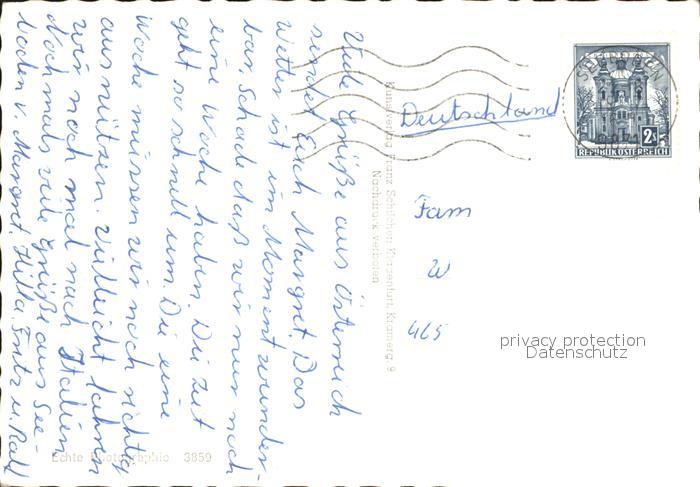 Viele Grüße aus Österreich
sendet Euch Margret. Das
Wetter ist im Moment wunder-
bar. Schade daß wir nur noch
eine Woche haben. Die Zeit
geht so schnell um. Die eine
Woche müssen wir noch richtig
ausnützen. Vielleicht fahren
wir noch mal nach Italien
Nochmals viele Grüße aus See-
boden v. Margret, Hilla, Fritz u. Ralf
Echte Photographie 3859
Kunstverlag Franz Schilcher, Klagenfurt, Kramerg. 9
Nachdruck verboten
2S
REPUBLIK ÖSTERREICH
Deutschland
Fam
W
465
privacy protection
Datenschutz